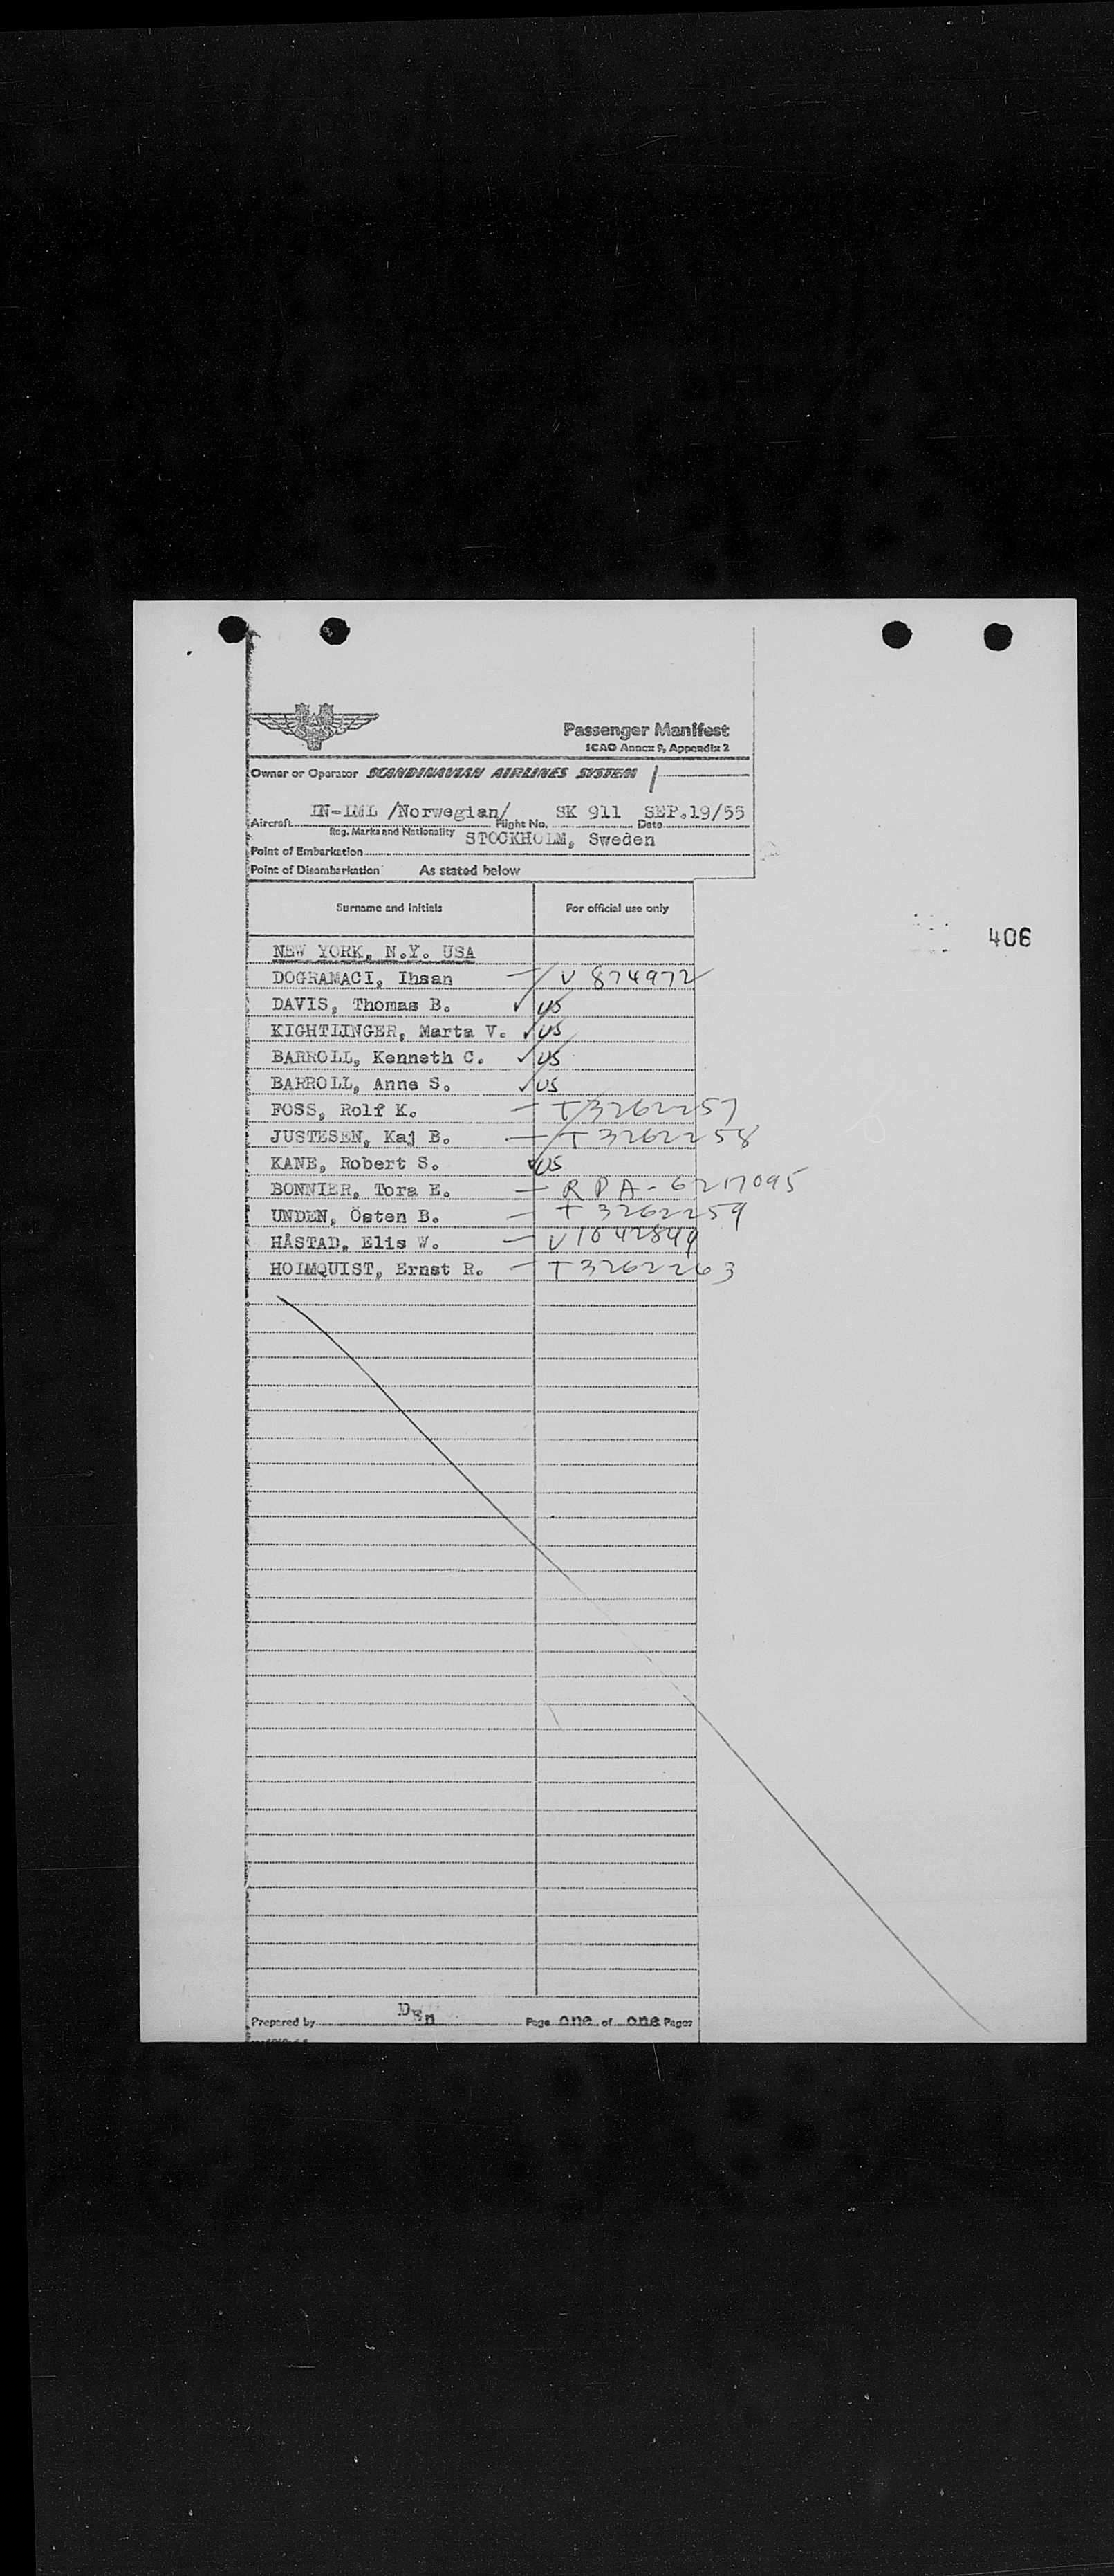 SAS
Passenger Manifest
ICAO Annex 9, Appendix 2
Owner or Operator SCANDINAVIAN AIRLINES SYSTEM
IN-IML /Norwegian/ SK 911 SEP.19/55
Aircraft Flight No. Date
Reg. Marks and Nationality
STOCKHOLM, Sweden
Point of Embarkation
Point of Disembarkation As stated below
Surname and initials For official use only
406
NEW YORK, N.Y. USA
DOGRAMACI, Ihsan — V 874972
DAVIS, Thomas B. ✓ US
KIGHTLINGER, Marta V. ✓ US
BARROLL, Kenneth C. ✓ US
BARROLL, Anne S. ✓ US
FOSS, Rolf K. — T 3262257
JUSTESEN, Kaj B. — T 3262258
KANE, Robert S. ✓ US
BONNIER, Tora E. — RPA-6217095
UNDEN, Östen B. — T 3262259
HÅSTAD, Elis W. — V1042849
HOLMQUIST, Ernst R. — T3262263
Prepared by Page one of one Pages